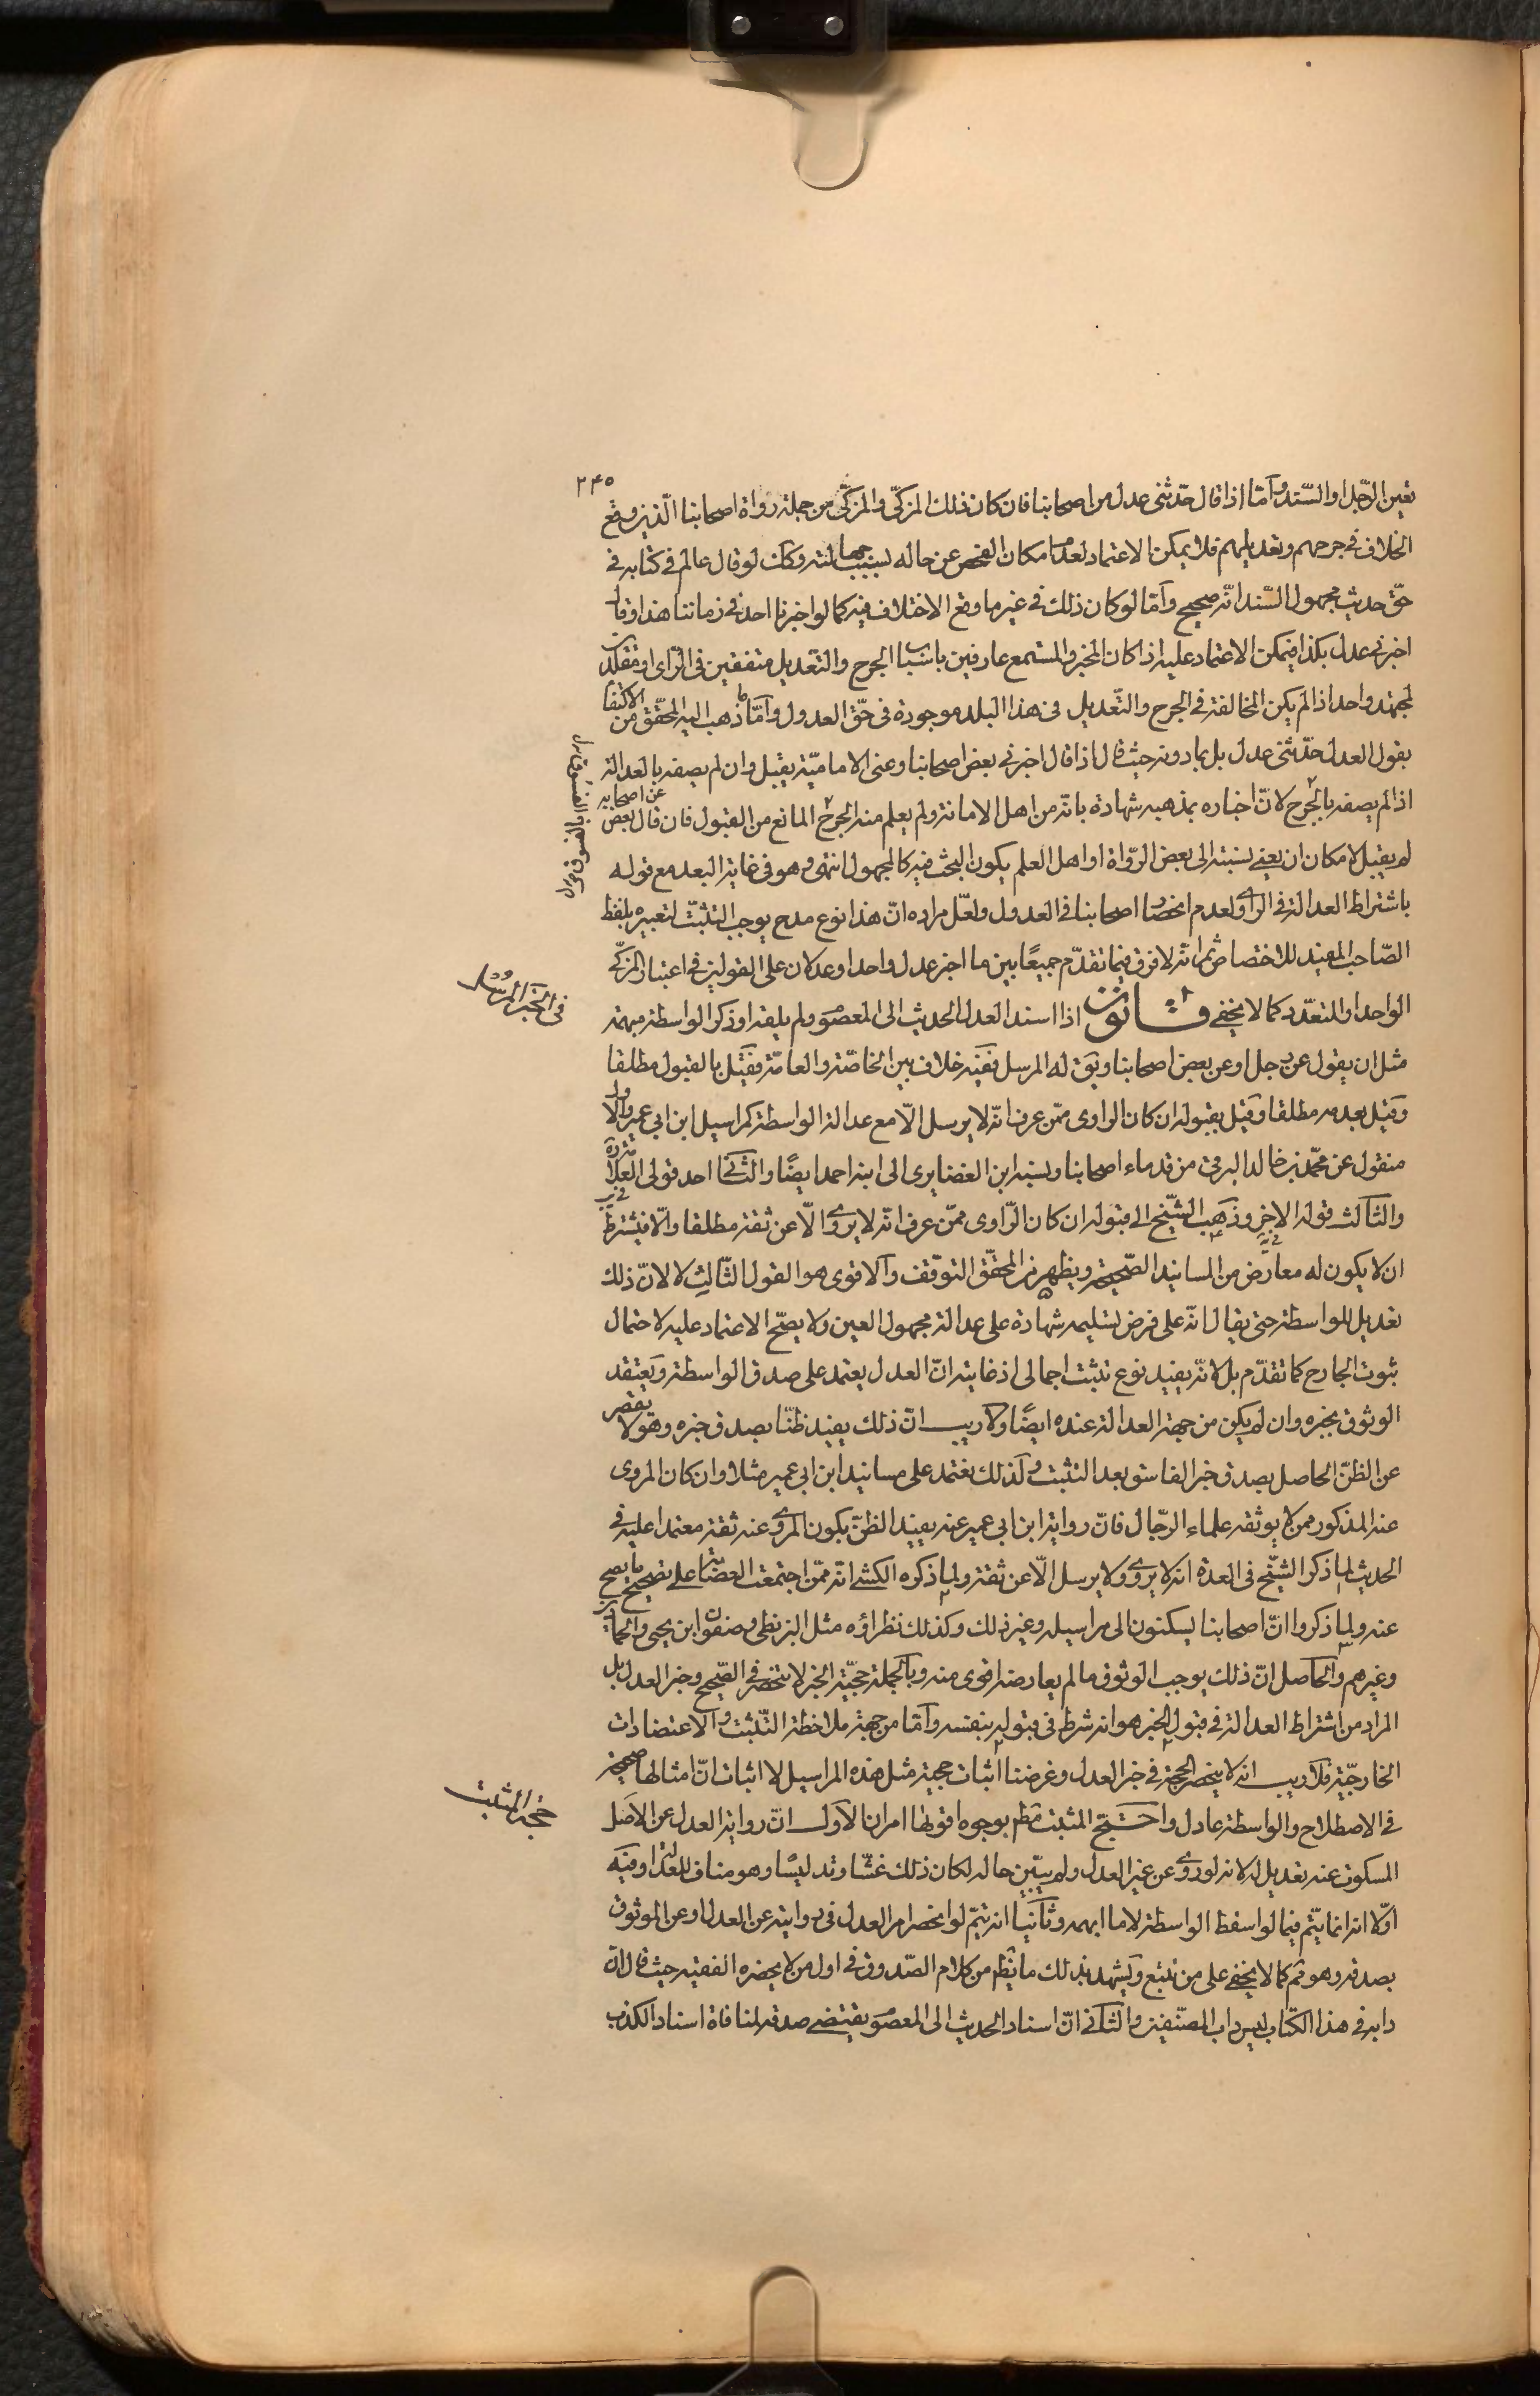 ٢۴۵
تعيين الرّجل او السّند وامّا اذا قال حدّثنى عدل من اصحابنا فان كان ذلك المزكّى والمزكّى من جملة رواة اصحابنا الّذين وقع
الخلاف فى جرحهم وتعديلهم فلا يمكن الاعتماد لعدم امكان الفحص عن حاله بسبب جهالته وكك لو قال عالم فى كتابه فى
حقّ حديث مجهول السّند انّه صحيح وامّا لو كان ذلك فى غير ما وقع الاختلاف فيه كما لو اخبرنا احد فى زماننا هذا وقال
اخبرنى عدل بكذا فيمكن الاعتماد عليه اذا كان المخبر والمستمع عارفين باسباب الجرح والتّعديل متفقين فى الرّاى او مقلّدين
لمجتهد واحد اذا لم يكن المخالفة فى الجرح والتّعديل فى هذا البلد موجودة فى حقّ العدول وامّا ما ذهب اليه المحقّق من الاكتفا
بقول العدل حدّثنى عدل بل بما دونه حيث قال اذا قال اخبرنى بعض اصحابنا وعنى الاماميّة يقبل وان لم يصفه بالعدالة
اذا لم يصفه بالجرح لانّ اخباره بمذهبه شهادة بانّه من اهل الامانة ولم يعلم منه الجرح المانع من القبول فان قال عن بعض اصحابه
لم يقبل لامكان ان يعنى نسبته الى بعض الرّواة او اهل العلم يكون البحث فيه كالمجهول انتهى وهو فى غاية البعد مع قوله
باشتراط العدالة فى الراوى ولعدم انحصار اصحابنا فى العدول ولعلّ مراده انّ هذا نوع مدح يوجب التثبّت لتعبيره بلفظ
الصّاحب المفيد للاختصاص ثم انّه لا فرق فيما تقدّم جميعًا بين ما اخبر عدل واحد او عدلان على القولين فى اعتبار المزكّى
الواحد او المتعدّد كما لا يخفى قانون اذا اسند العدل الحديث الى المعصوم ولم يلقه او ذكر الواسطة مبهمة
مثل ان يقول عن رجل او عن بعض اصحابنا ويق له المرسل ففيه خلاف بين الخاصّة والعامّة فقيل بالقبول مطلقا
وقيل بعدمه مطلقا وقيل بقبوله ان كان الراوى ممّن عرف انّه لا يرسل الّا مع عدالة الواسطة كمراسيل ابن ابى عمير والاول
منقول عن محمّد بن خالد البرقى من قدماء اصحابنا ونسبه ابن الغضايرى الى ابنه احمد ايضًا والثّانى احد قولى العلامة ره
والثّالث قوله الاخر وذهب الشّيخ الى قبوله ان كان الرّاوى ممّن عرف انّه لا يروى الّا عن ثقة مطلقا والّا فيشترط
ان لا يكون له معارض من المسانيد الصّحيحة ويظهر من المحقّق التوقّف والاقوى هو القول الثّالث لا لانّ ذلك
تعديل للواسطة حتى يقال انّه على فرض تسليمه شهادة على عدالة مجهول العين ولا يصحّ الاعتماد عليه لاحتمال
ثبوت الجارح كما تقدّم بل لانّه يفيد نوع تثبّت اجمالى اذ غايته انّ العدل يعتمد على صدق الواسطة ويعتقد
الوثوق بخبره وان لم يكن من جهة العدالة عنده ايضًا ولا ريب انّ ذلك يفيد ظنّا بصدق خبره وهو لا يقصر
عن الظنّ الحاصل بصدق خبر الفاسق بعد التثبت ولذلك نعتمد على مسانيد ابن ابى عمير مثلا وان كان المروى
عنه المذكور ممن لا يوثقه علماء الرّجال فانّ رواية ابن ابى عمير عنه يفيد الظنّ بكون المروى عنه ثقة معتمدا عليه فى
الحديث لما ذكر الشّيخ فى العدة انه لا يروى ولا يرسل الّا عن ثقة ولما ذكره الكشى انه ممّن اجتمعت العصابة على تصحيح ما يصح
عنه ولما ذكروا انّ اصحابنا يسكنون الى مراسيله وغير ذلك وكذلك نظراؤه مثل البزنطى وصفوان بن يحيى والحمادين
وغيرهم والحاصل انّ ذلك يوجب الوثوق ما لم يعارضه اقوى منه وبالجملة حجّيّة الخبر لا ينحصر فى الصّحيح وخبر العدل بل
المراد من اشتراط العدالة فى قبول الخبر هو انه شرط فى قبوله بنفسه وامّا من جهة ملاحظة التّثبت والاعتضادات
الخارجيّة فلا ريب انّه لا ينحصر الحجة فى خبر العدل وغرضنا اثبات حجية مثل هذه المراسيل لا اثبات انّ امثالها صحيحة
فى الاصطلاح والواسطة عادل واحتجّ المثبت مطم بوجوه اقويها امران الاوّل انّ رواية العدل عن الاصل
المسكوت عنه تعديل له لانه لو روى عن غير العدل ولم يبيّن حاله لكان ذلك غشّا وتدليسًا وهو مناف للعدالة وفيه
اوّلا انه انما يتم فيما لو اسقط الواسطة لا ما ابهمه وثانيا انه يتمّ لو انحصر امر العدل فى روايته عن العدل او عن الموثوق
بصدقه وهو مم كما لا يخفى على من تتبع ويشهد بذلك ما يظم من كلام الصّدوق فى اول من لا يحضره الفقيه حيث قال انّ
دابه فى هذا الكتاب ليس داب المصنّفين والثّانى انّ اسناد الحديث الى المعصوم يقتضى صدقه لمنافاة اسناد الكذب
فى الخبر المرسل
حجّة المثبت